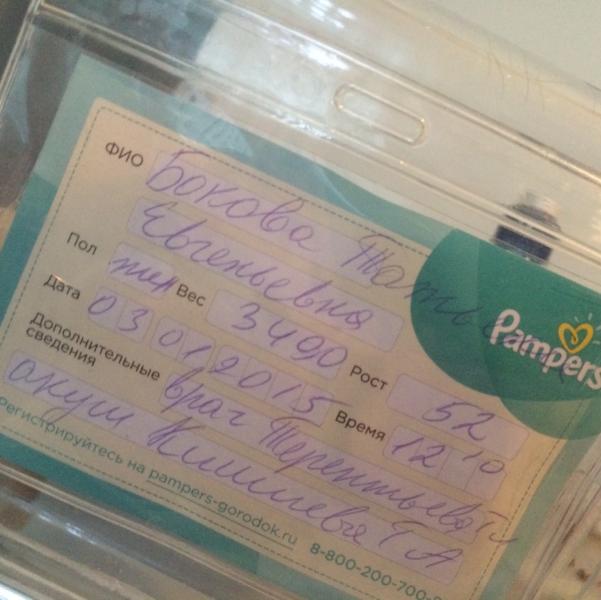 ФИО Бокова Татьяна
Евгеньевна
Пол жен Вес 3490 Рост 52
Дата 03 01 2015 Время 12 10
Дополнительные сведения врач Терентьева
акуш.
Регистрируйтесь на pampers-gorodok.ru 8-800-200-700-
Pampers